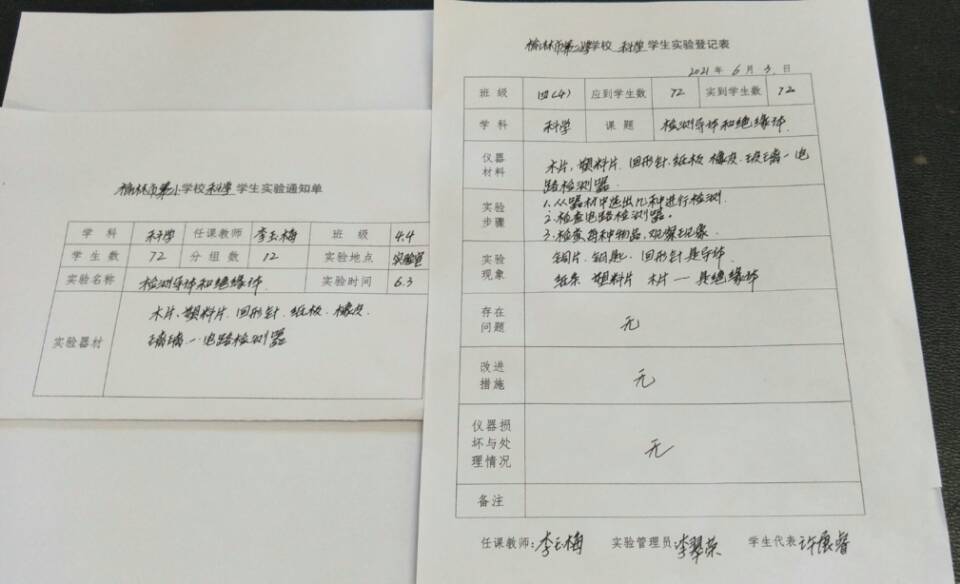 榆林市第 小学校科学学生实验通知单
学科 科学 任课教师 李玉梅 班级 4.4
学生数 72 分组数 12 实验地点 实验室
实验名称 检测导体和绝缘体. 实验时间 6.3
实验器材 木片、塑料片.回形针.纸板、橡皮.
玻璃一电路检测器
榆林市第 小学校 科学 学生实验登记表
2021年6月3日
班级 四(4) 应到学生数 72 实到学生数 72
学科 科学 课题 检测导体和绝缘体.
仪器材料 木片、塑料片.回形针.纸板 橡皮.玻璃一电
路检测器.
实验步骤 1.从器材中选出几种进行检测.
2.检查电路检测器。
3.检查每种物品,观察现象.
实验现象 铜片.钥匙.回形针是导体.
纸条 塑料片 木片一是绝缘体
存在问题 无
改进措施 无
仪器损坏与处理情况 无
备注
任课教师:李玉梅 实验管理员:李翠荣 学生代表:许 睿